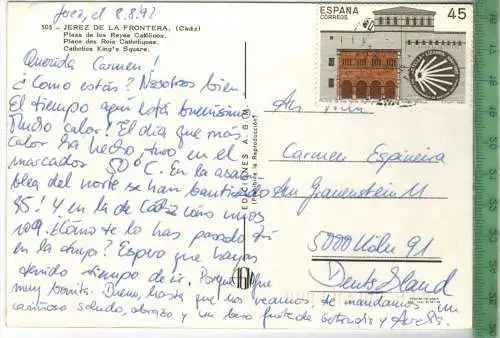 Jerez, el 8.8.92
505 - JEREZ DE LA FRONTERA. (Cádiz)
Plaza de los Reyes Católicos.
Place des Rois Catholiques.
Catholics King's Square.
Querida Carmen!
¿Como estás? Nosotros bien
El tiempo aquí está buenísimo
Mucho calor! El día que más
calor ha hecho, tuvo en el
marcador 50°C. En la
del norte se han bautizado
85! Y en la de Cádiz unos
109. ¿Cómo te lo has pasado tú
en la? Espero que hayas
tenido tiempo de ir. Porque que
muy bonita. Bueno, hasta que nos veamos te mandamos un
cariñoso saludo, abrazo y un beso fuerte de y
EDICIONES A.G.M.
(Prohibida la Reproducción)
ESPAÑA
CORREOS
45
An
Carmen Espineira
Am Grauenstein 11
5000 Köln 91
Deutschland